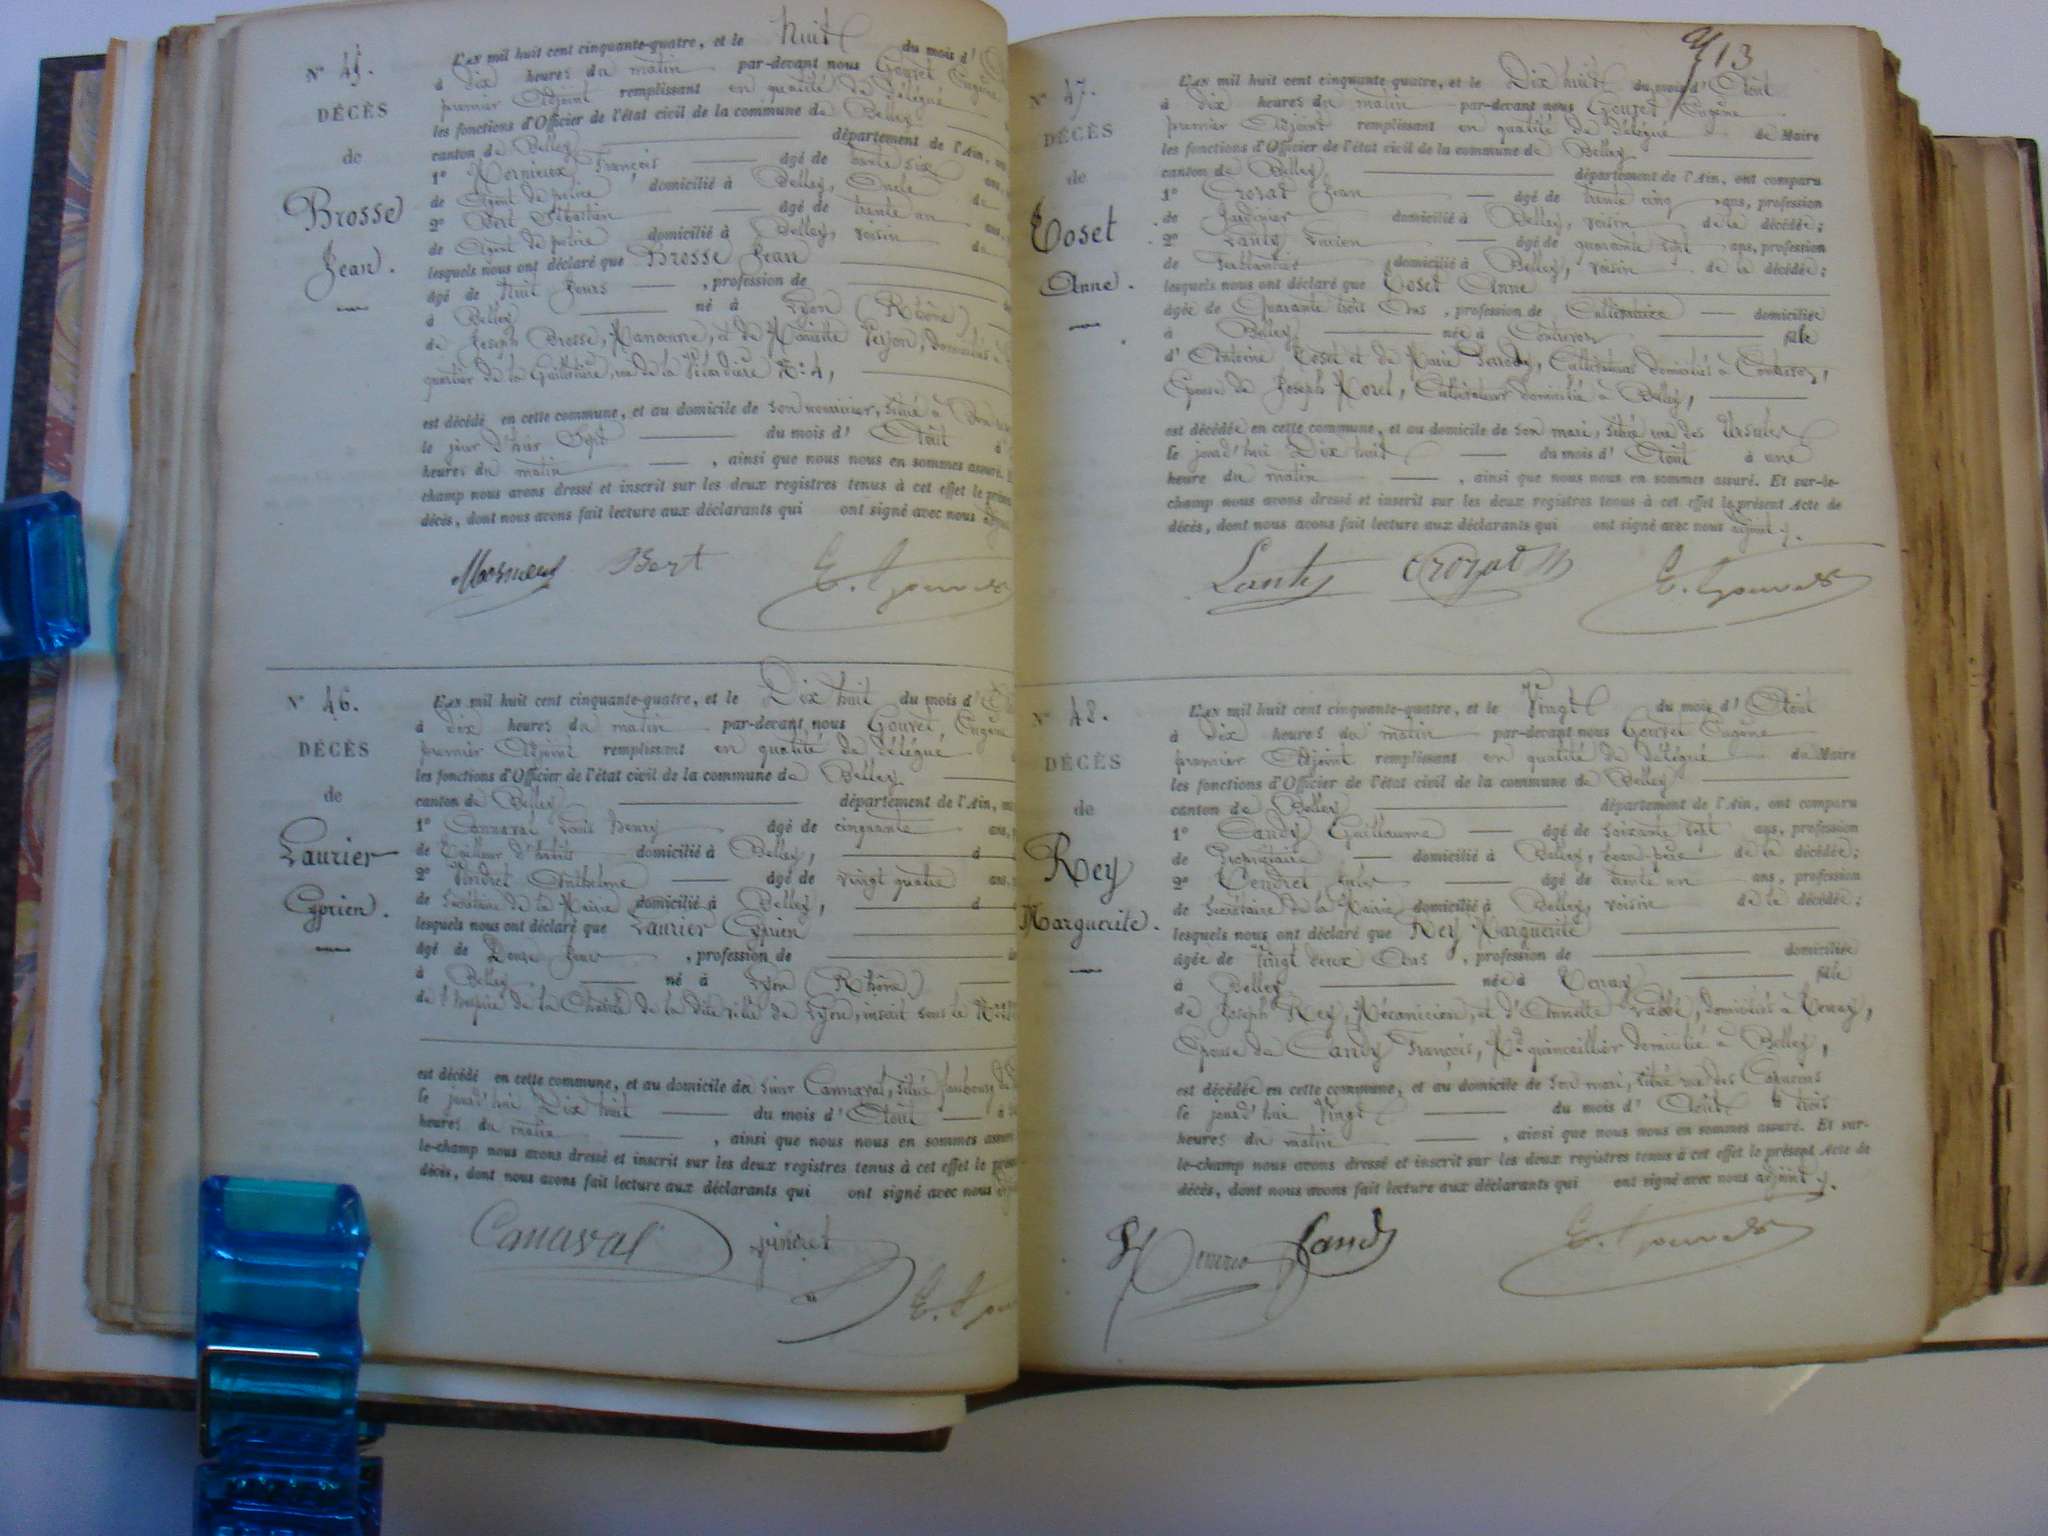 N° 45.
DÉCÈS
de
Brosse
Jean.
L'AN mil huit cent cinquante-quatre, et le huit du mois d'
à Dix heures du matin par-devant nous Gouvet Eugène
premier Adjoint remplissant en qualité de délégué
les fonctions d'Officier de l'état civil de la commune de Belley
canton de Belley département de l'Ain,
1° François âgé de trente six ans,
de Agent de police domicilié à Belley, Oncle
2° Bert Sébastien âgé de trente un ans,
de Agent de police domicilié à Belley, voisin
lesquels nous ont déclaré que Brosse Jean
âgé de huit Jours, profession de
à Belley né à Lyon (Rhône),
de Joseph Brosse, Manoeuvre, et de domiciliés à
quartier de la Guillotière, rue de la N° 4,
est décédé en cette commune, et au domicile de son nourricier, situé à
le jour d'hier Sept du mois d' Août à
heures du matin, ainsi que nous nous en sommes assuré.
champ nous avons dressé et inscrit sur les deux registres tenus à cet effet le
décès, dont nous avons fait lecture aux déclarants qui ont signé avec nous
Bert E. Gouvet
N° 46.
DÉCÈS
de
Laurier
Cyprien.
L'AN mil huit cent cinquante-quatre, et le Dix huit du mois d'
à Dix heures du matin par-devant nous Gouvet Eugène
premier Adjoint remplissant en qualité de délégué
les fonctions d'Officier de l'état civil de la commune de Belley
canton de Belley département de l'Ain,
1° Louis henry âgé de cinquante ans,
de Tailleur d'habits domicilié à Belley, d
2° Anthelme âgé de vingt quatre ans,
de Secrétaire de la Mairie domicilié à Belley, d
lesquels nous ont déclaré que Laurier Cyprien
âgé de Douze Jours, profession de
à Belley né à Lyon (Rhône)
de l'hospice de la Charité de la dite ville de Lyon, inscrit sous le N°
est décédé en cette commune, et au domicile du Sieur Cannaval, situé faubourg
le jourd'hui Dix huit du mois d' Août à
heures du matin, ainsi que nous nous en sommes
le-champ nous avons dressé et inscrit sur les deux registres tenus à cet effet le
décès, dont nous avons fait lecture aux déclarants qui ont signé avec nous
Canaval
413
N° 47.
DÉCÈS
de
Toset
Anne.
L'AN mil huit cent cinquante-quatre, et le Dix huit du mois d' Août
à Dix heures du matin par-devant nous Gouvet, Eugène
premier Adjoint remplissant en qualité de délégué de Maire
les fonctions d'Officier de l'état civil de la commune de Belley
canton de Belley département de l'Ain, ont comparu
1° Crozat Jean âgé de trente cinq ans, profession
de Jardinier domicilié à Belley, voisin de la décédée;
2° Lanty Lucien âgé de quarante sept ans, profession
de Ferblantier domicilié à Belley, voisin de la décédée;
lesquels nous ont déclaré que Toset Anne
âgée de Quarante trois Ans, profession de Cultivatrice domiciliée
à Belley née à Contrevoz fille
d' Antoine Toset et de Marie Cultivateurs domiciliés à Contrevoz,
Epouse de Joseph Morel, Cultivateur domicilié à Belley,
est décédée en cette commune, et au domicile de son mari, situé rue des Ursules
le jourd'hui Dix huit du mois d' Août à une
heure du matin, ainsi que nous nous en sommes assuré. Et sur-le-
champ nous avons dressé et inscrit sur les deux registres tenus à cet effet le présent Acte de
décès, dont nous avons fait lecture aux déclarants qui ont signé avec nous adjoint.
Lanty Crozat E. Gouvet
N° 48.
DÉCÈS
de
Rey
Marguerite.
L'AN mil huit cent cinquante-quatre, et le Vingt du mois d' Août
à Dix heures du matin par-devant nous Gouvet Eugène
premier Adjoint remplissant en qualité de délégué du Maire
les fonctions d'Officier de l'état civil de la commune de Belley
canton de Belley département de l'Ain, ont comparu
1° Candy Guillaume âgé de soixante sept ans, profession
de Propriétaire domicilié à Belley, beau-père de la décédée;
2° âgé de trente un ans, profession
de Secrétaire de la Mairie domicilié à Belley, voisin de la décédée;
lesquels nous ont déclaré que Rey Marguerite
âgée de Vingt deux Ans, profession de domiciliée
à Belley née à Tenay fille
de Joseph Rey, Mécanicien, et d'Annette Labbé, domiciliés à Tenay,
Epouse de Candy François, Md quincaillier domicilié à Belley,
est décédée en cette commune, et au domicile de son mari, situé rue des Capucins
le jourd'hui Vingt du mois d' Août à trois
heures du matin, ainsi que nous nous en sommes assuré. Et sur-
le-champ nous avons dressé et inscrit sur les deux registres tenus à cet effet le présent Acte de
décès, dont nous avons fait lecture aux déclarants qui ont signé avec nous adjoint.
Candy E. Gouvet